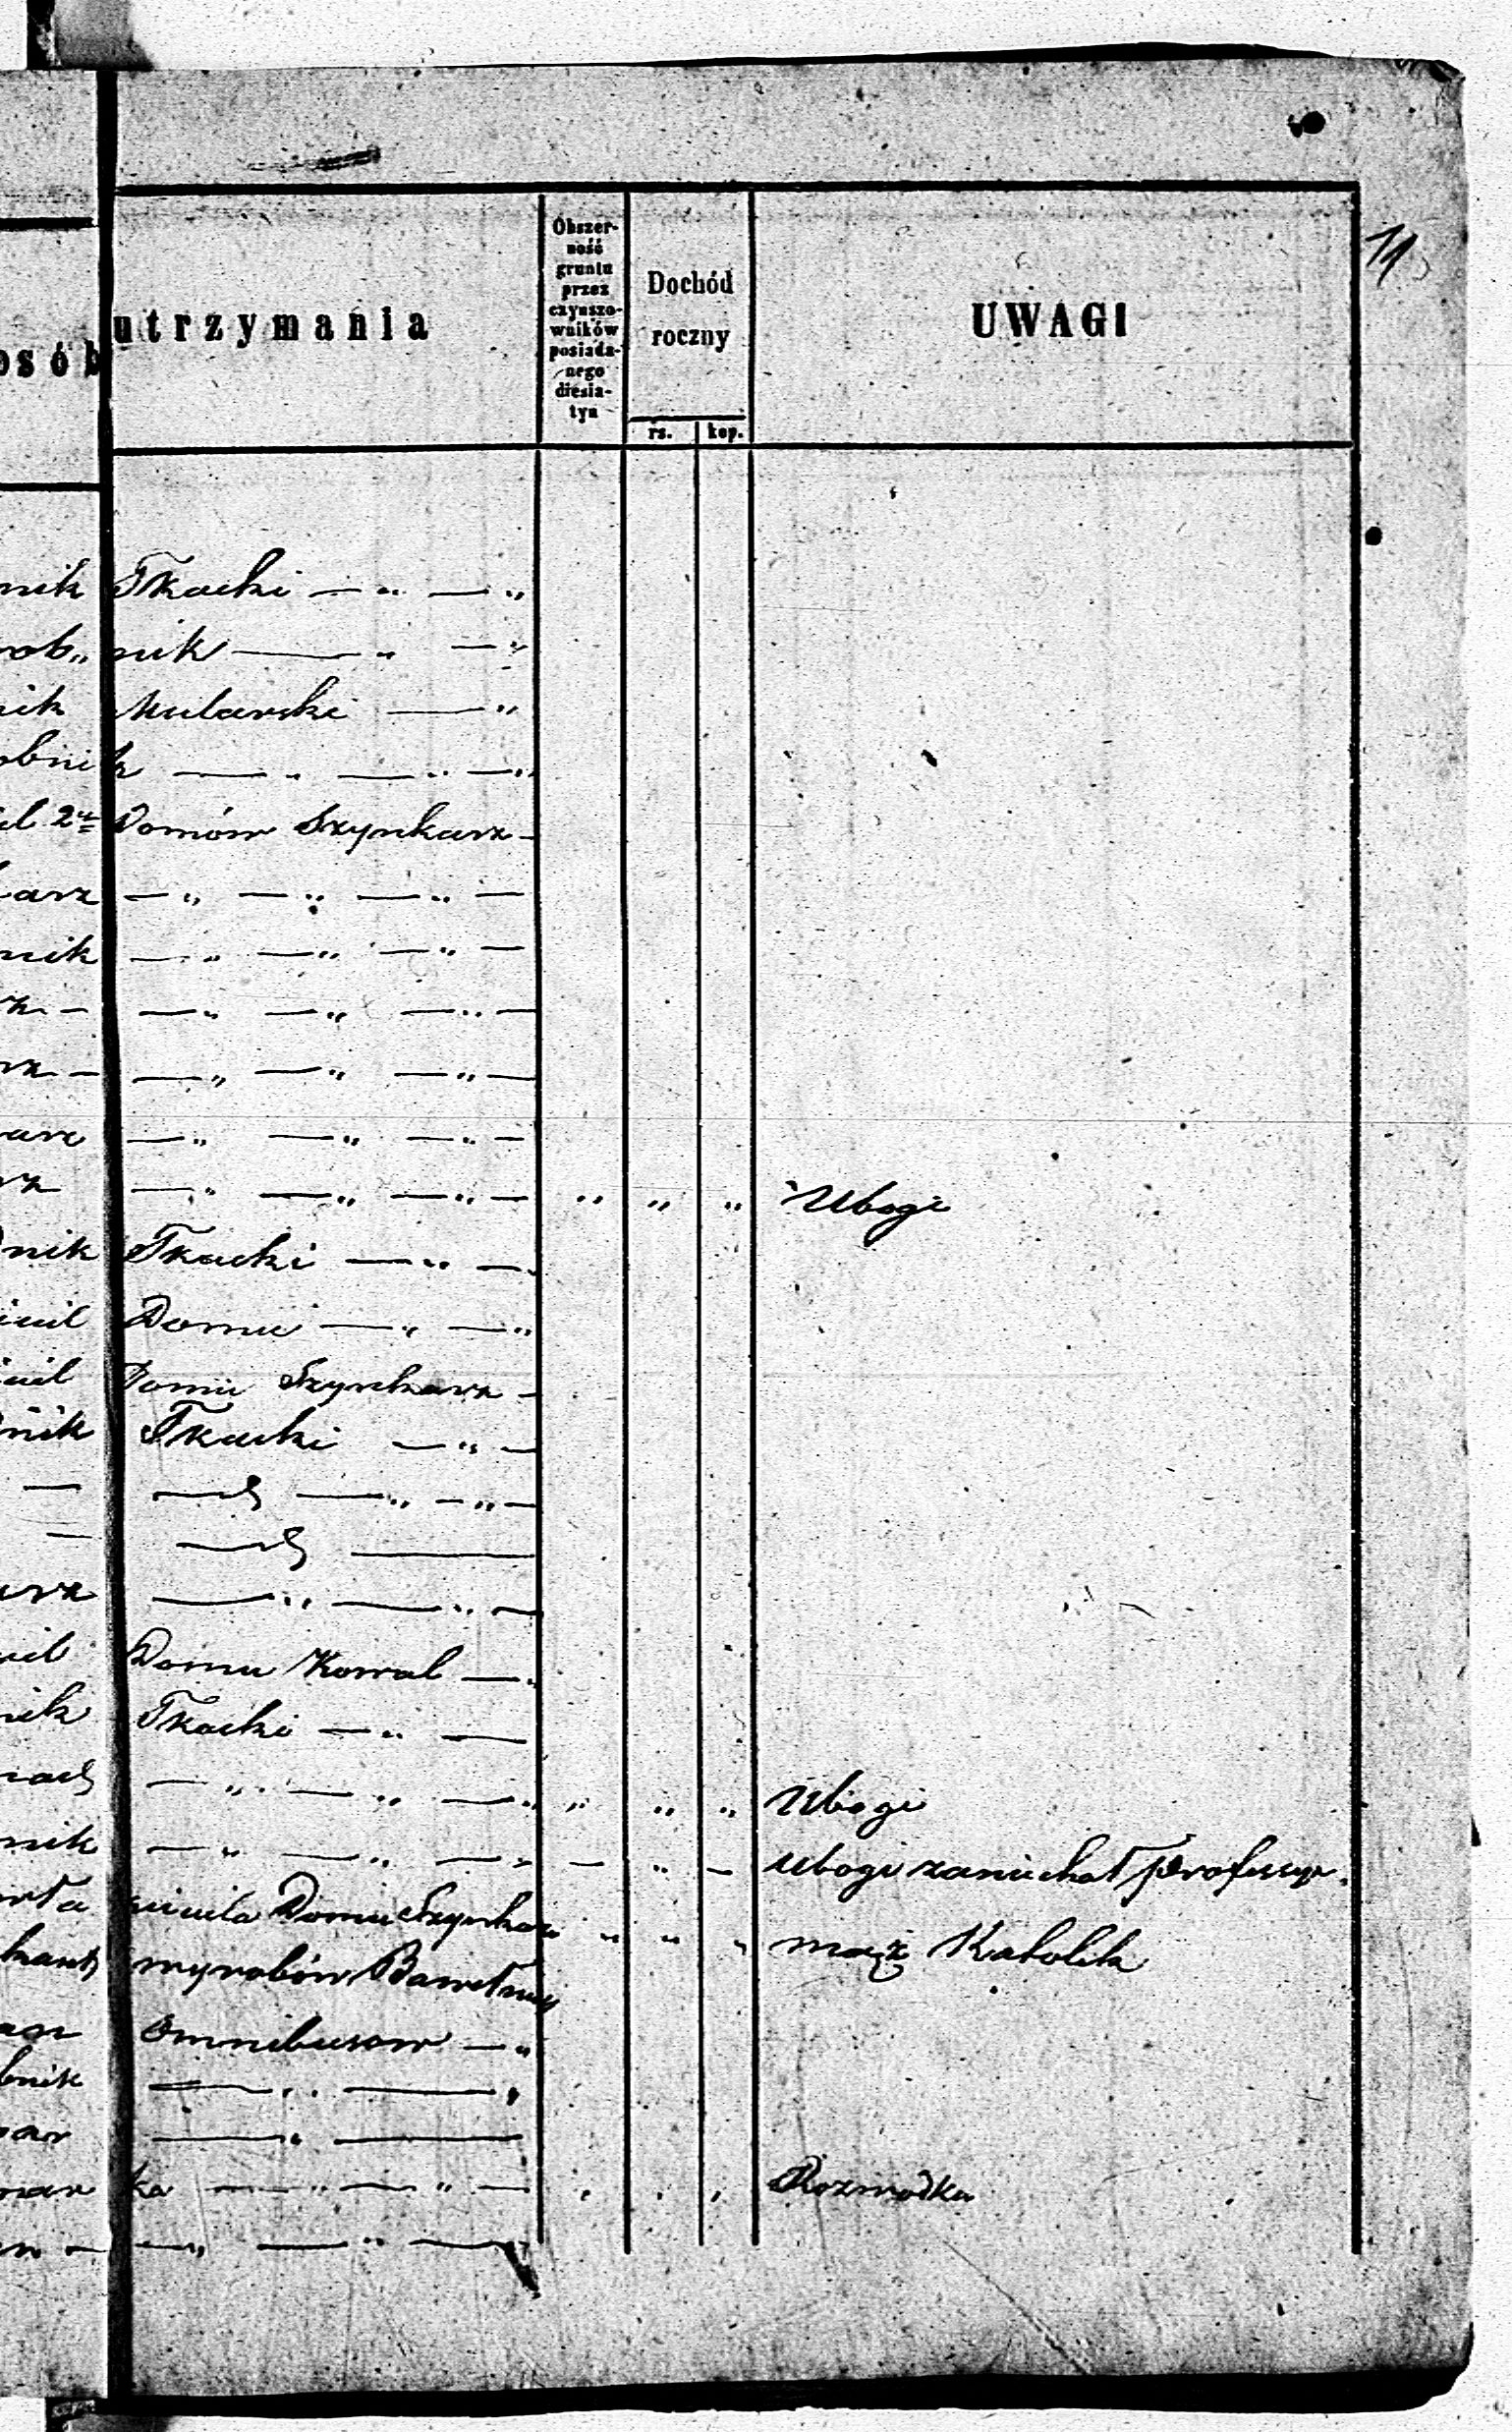 11
osób utrzymania
Obszer-
ność
gruntu
przez
czynszo-
wników
posiada-
nego
diesia-
tyn
Dochód
roczny
rs. kop.
UWAGI
nik Tkacki — „ — „
rob„ nik — „ — „
ik Mularski — „
obnik — „ — „ — „
il 2ch Domów Szynkarz —
arz — „ — „ — „ —
nik — „ — „ — „ —
z — — „ — „ — „ —
rz — — „ — „ — „ —
arz — „ — „ — „ —
rz — „ — „ — „ — „ „ „ Ubogi
nik Tkacki — „ —
iciel Domu — „ — „
iciel Domu Szynkarz —
nik Tkacki — „ —
— — — „ — „ —
— — —
arz — „ — „ —
ciel Domu Kowal — „
nik Tkacki — „ —
— „ — „ — „ „ „ „ Ubogi
nik — „ — „ — „ — „ — Ubogi zaniechał professyi.
ciciela Domu Szynkarz „ „ „ mąż Katolik
wyrobów Bawełnia
an Omnibusow — „
bnik — „ — „
— „ —
ka — „ — „ — „ „ „ Rozwodka
— — „ — „ —